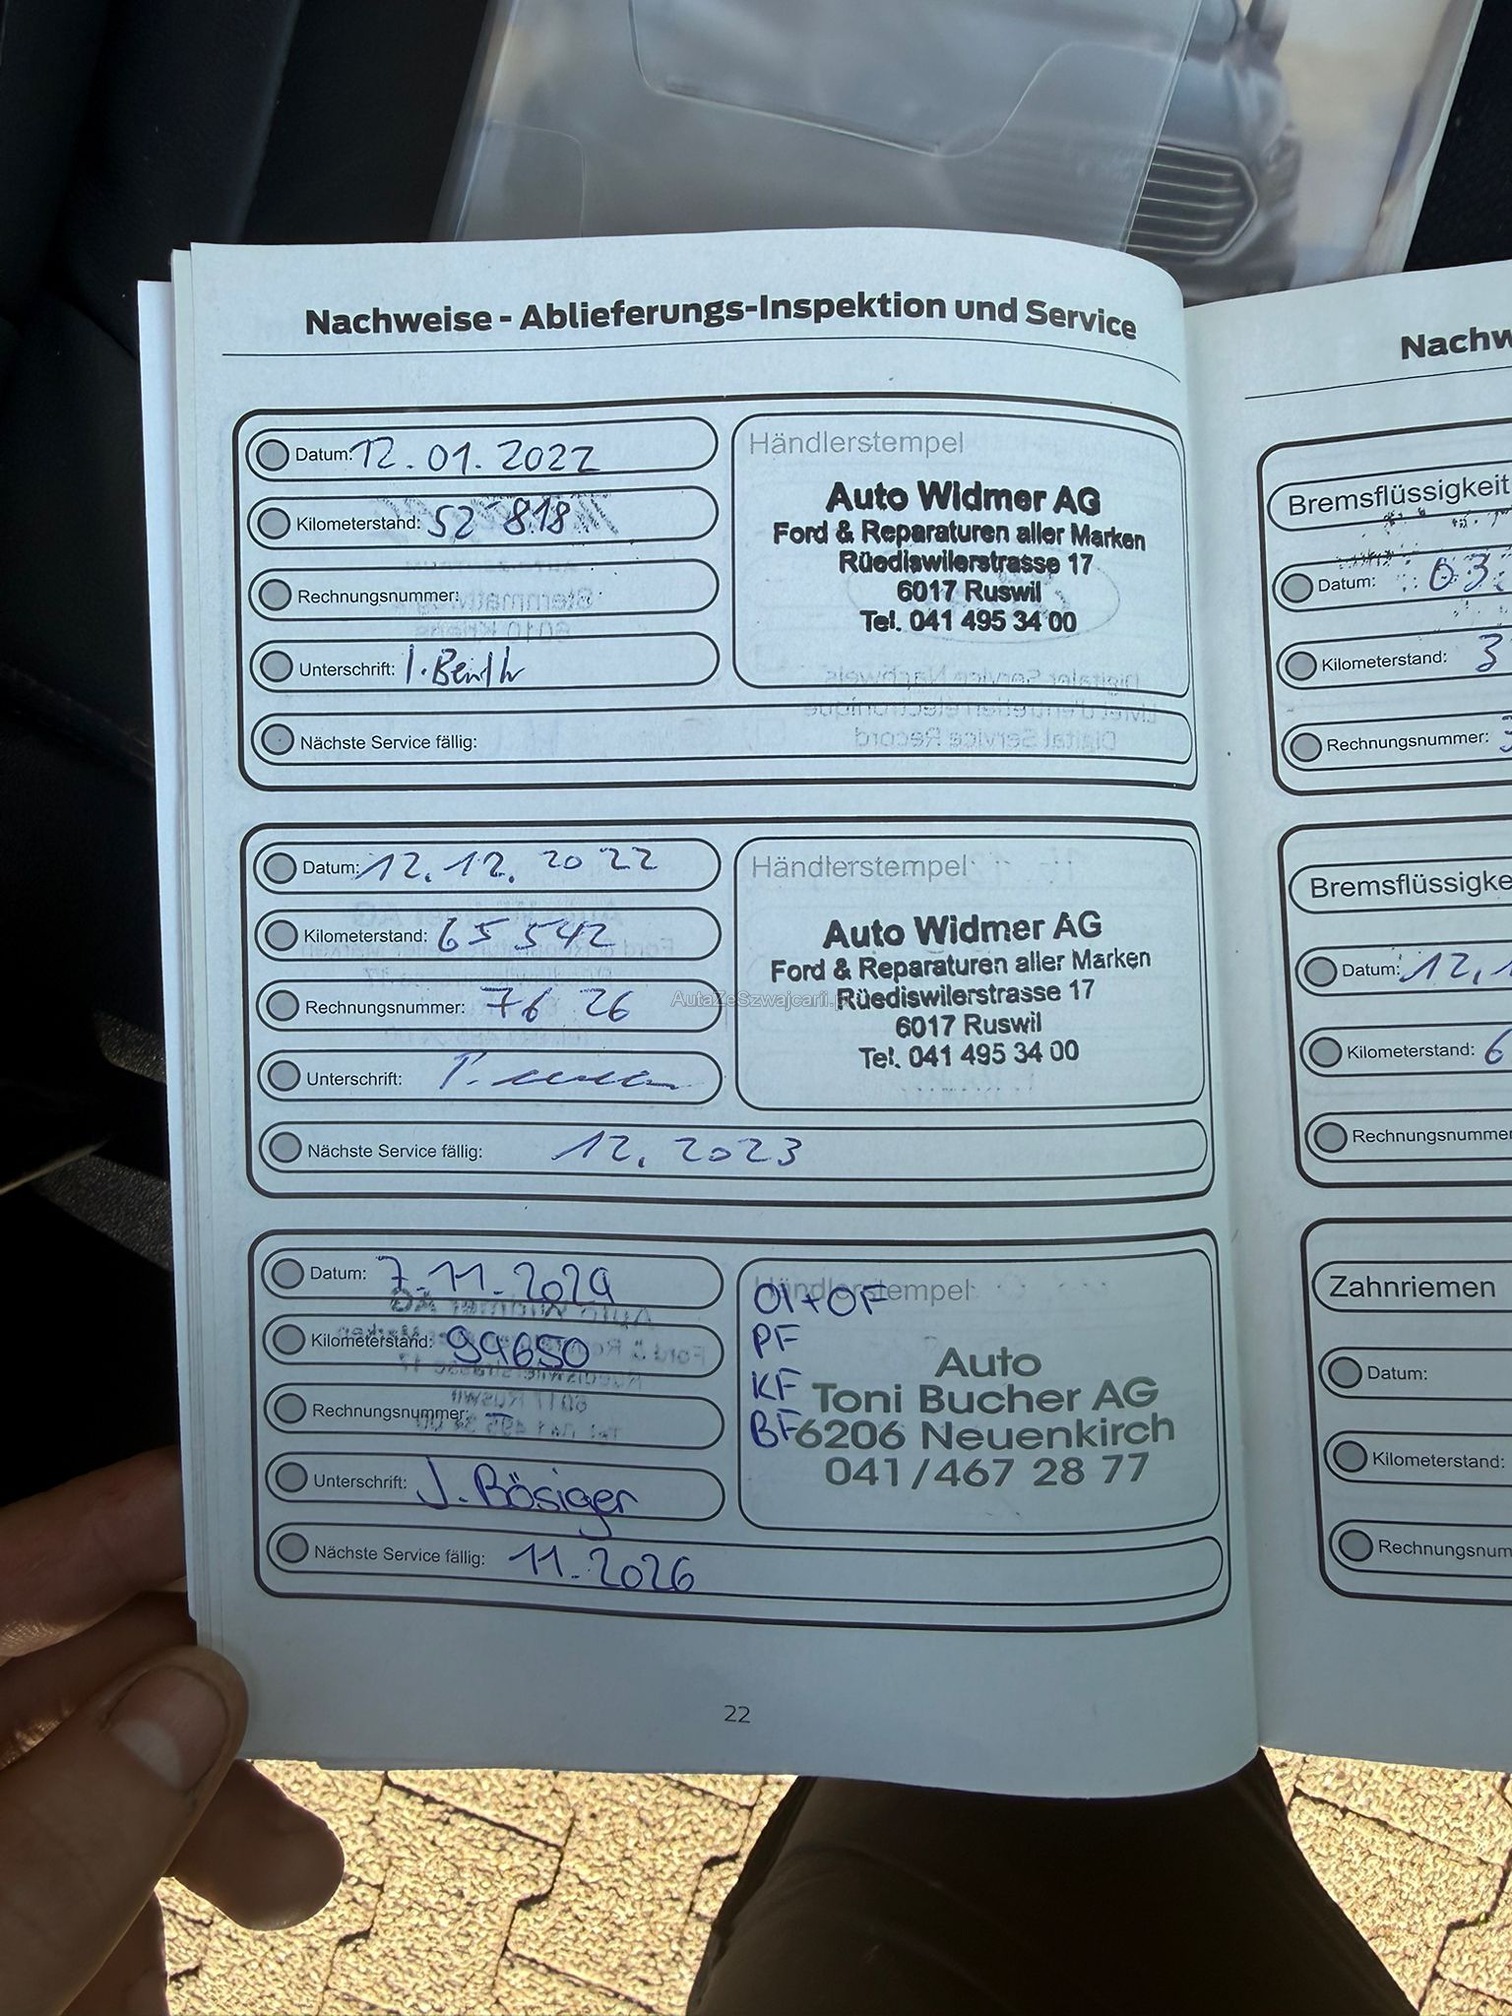 Nachweise - Ablieferungs-Inspektion und Service
Datum: 12.01.2022
Kilometerstand: 52'818
Rechnungsnummer:
Unterschrift:
Nächste Service fällig:
Händlerstempel
Auto Widmer AG
Ford & Reparaturen aller Marken
Rüediswilerstrasse 17
6017 Ruswil
Tel. 041 495 34 00
Digitaler Service Nachweis
Livret d'entretien électronique
Digital Service Record
Datum: 12.12.2022
Kilometerstand: 65 542
Rechnungsnummer: 76 26
Unterschrift:
Nächste Service fällig: 12.2023
Händlerstempel
Auto Widmer AG
Ford & Reparaturen aller Marken
Rüediswilerstrasse 17
6017 Ruswil
Tel. 041 495 34 00
AutaZeSzwajcarii.p
Datum: 7.11.2024
Kilometerstand: 94650
Rechnungsnummer: -
Unterschrift: J. Bösiger
Nächste Service fällig: 11.2026
Händlerstempel
Öl+ÖF
PF
KF
BF
Auto
Toni Bucher AG
6206 Neuenkirch
041/467 28 77
22
Nachw
Bremsflüssigkeit
Datum: 03.
Kilometerstand: 3
Rechnungsnummer: 3
Bremsflüssigke
Datum: 12.1
Kilometerstand: 6
Rechnungsnummer
Zahnriemen
Datum:
Kilometerstand:
Rechnungsnum